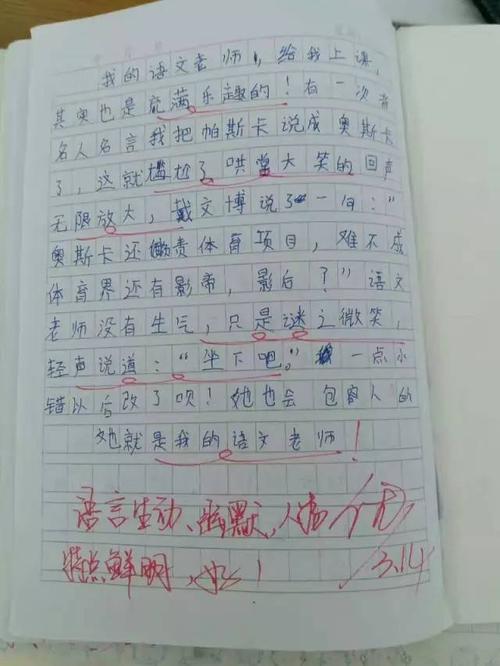 我的语文老师，给我上课，
其实也是能满乐趣的！有一次背
名人名言我把帕斯卡说成奥斯卡
了，这就尴尬了哄堂大笑的回声
无限放大，戴文博说了一句："
奥斯卡还懒责体育项目，难不成
体育界还有影帝，影后？"语文
老师没有生气，只是谜之微笑，
轻声说道："坐下吧。"一点小
错以后改了呗！她也会包容人的
她就是我的语文老师！
语言生动、幽默，人物
特点鲜明，好！
3.14